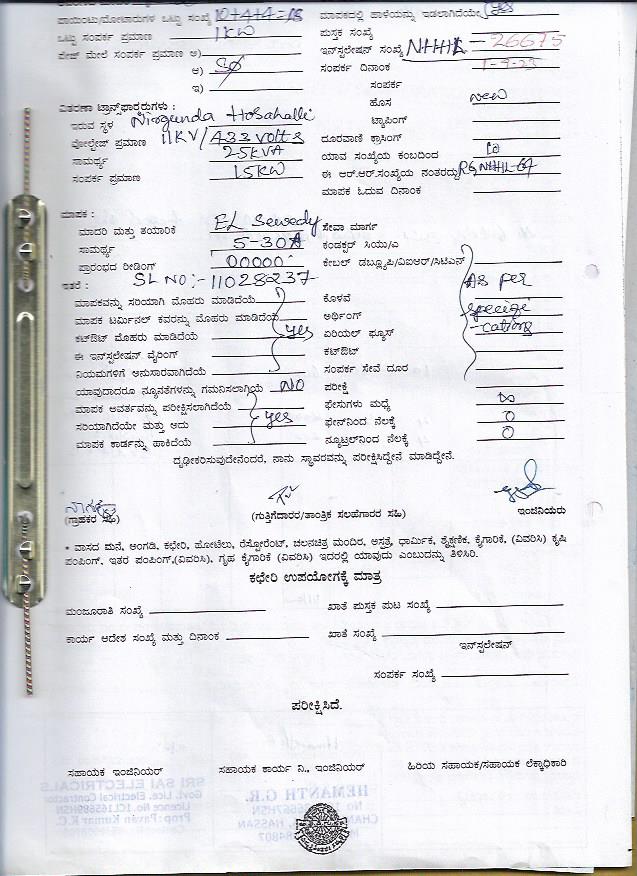 ಪಾಯಿಂಟು/ಮೋಟಾರುಗಳ ಒಟ್ಟು ಸಂಖ್ಯೆ 10+4+4=18
ಮಾಪಕದಲ್ಲಿ ಹಾಳೆಯನ್ನು ಇಡಲಾಗಿದೆಯೇ yes
ಒಟ್ಟು ಸಂಪರ್ಕ ಪ್ರಮಾಣ 1KW
ಪುಸ್ತಕ ಸಂಖ್ಯೆ
ಪೇಜ್ ಮೇಲೆ ಸಂಪರ್ಕ ಪ್ರಮಾಣ ಅ)
ಇನ್‌ಸ್ಟಲೇಷನ್ ಸಂಖ್ಯೆ NHHL-26675
ಆ)
ಸಂಪರ್ಕ ದಿನಾಂಕ
ಇ)
ಸಂಪರ್ಕ
ವಿತರಣಾ ಟ್ರಾನ್ಸ್‌ಫಾರ್ಮರುಗಳು :
ಹೊಸ new
ಇರುವ ಸ್ಥಳ Nirgunda Hosahalli
ಟ್ಯಾಪಿಂಗ್
ವೋಲ್ಟೇಜ್ ಪ್ರಮಾಣ 11KV/433 volts
ದೂರವಾಣಿ ಕ್ರಾಸಿಂಗ್
ಸಾಮರ್ಥ್ಯ 25KVA
ಯಾವ ಸಂಖ್ಯೆಯ ಕಂಬದಿಂದ
ಸಂಪರ್ಕ ಪ್ರಮಾಣ 15KW
ಈ ಆರ್.ಆರ್.ಸಂಖ್ಯೆಯ ನಂತರದ್ದು
ಮಾಪಕ ಓದುವ ದಿನಾಂಕ
ಮಾಪಕ :
ಮಾದರಿ ಮತ್ತು ತಯಾರಿಕೆ EL Sewedy
ಸೇವಾ ಮಾರ್ಗ
ಸಾಮರ್ಥ್ಯ 5-30A
ಕಂಡಕ್ಟರ್ ಸಿಯು/ಎ
ಪ್ರಾರಂಭದ ರೀಡಿಂಗ್ 00000
ಕೇಬಲ್ ಡಬ್ಲ್ಯೂಪಿ/ವಿಐಆರ್/ಸಿಟಿಎಸ್
ಇತರೆ : SL NO:-11028237
As per
ಮಾಪಕವನ್ನು ಸರಿಯಾಗಿ ಮೊಹರು ಮಾಡಿದೆಯೆ
ಕೊಳವೆ
specifi
ಮಾಪಕ ಟರ್ಮಿನಲ್ ಕವರನ್ನು ಮೊಹರು ಮಾಡಿದೆಯೆ
ಅರ್ಥಿಂಗ್
-cations
ಕಟ್‌ಔಟ್ ಮೊಹರು ಮಾಡಿದೆಯೆ yes
ಏರಿಯಲ್ ಫ್ಯೂಸ್
ಈ ಇನ್‌ಸ್ಟಲೇಷನ್ ವೈರಿಂಗ್
ಕಟ್‌ಔಟ್
ನಿಯಮಗಳಿಗೆ ಅನುಸಾರವಾಗಿದೆಯೆ
ಸಂಪರ್ಕ ಸೇವೆ ದೂರ
ಯಾವುದಾದರೂ ನ್ಯೂನತೆಗಳನ್ನು ಗಮನಿಸಲಾಗಿದೆಯೆ NO
ಪರೀಕ್ಷೆ
ಮಾಪಕ ಅವರ್ತವನ್ನು ಪರೀಕ್ಷಿಸಲಾಗಿದೆಯೆ
ಫೇಸುಗಳು ಮಧ್ಯೆ ∞
ಸರಿಯಾಗಿದೆಯೇ ಮತ್ತು ಅದು yes
ಫೇಸ್‌ನಿಂದ ನೆಲಕ್ಕೆ 0
ಮಾಪಕ ಕಾರ್ಡನ್ನು ಹಾಕಿದೆಯೆ
ನ್ಯೂಟ್ರಲ್‌ನಿಂದ ನೆಲಕ್ಕೆ 0
ದೃಢೀಕರಿಸುವುದೇನೆಂದರೆ, ನಾನು ಸ್ಥಾವರವನ್ನು ಪರೀಕ್ಷಿಸಿದ್ದೇನೆ ಮಾಡಿದ್ದೇನೆ.
(ಗ್ರಾಹಕರ ಸಹಿ)
(ಗುತ್ತಿಗೆದಾರರ/ತಾಂತ್ರಿಕ ಸಲಹೆಗಾರರ ಸಹಿ)
ಇಂಜಿನಿಯರು
* ವಾಸದ ಮನೆ, ಅಂಗಡಿ, ಕಛೇರಿ, ಹೋಟೆಲು, ರೆಸ್ಟೋರೆಂಟ್, ಚಲನಚಿತ್ರ ಮಂದಿರ, ಆಸ್ಪತ್ರೆ, ಧಾರ್ಮಿಕ, ಶೈಕ್ಷಣಿಕ, ಕೈಗಾರಿಕೆ, (ವಿವರಿಸಿ) ಕೃಷಿ
ಪಂಪಿಂಗ್, ಇತರ ಪಂಪಿಂಗ್,(ವಿವರಿಸಿ), ಗೃಹ ಕೈಗಾರಿಕೆ (ವಿವರಿಸಿ) ಇದರಲ್ಲಿ ಯಾವುದು ಎಂಬುದನ್ನು ತಿಳಿಸಿರಿ.
ಕಛೇರಿ ಉಪಯೋಗಕ್ಕೆ ಮಾತ್ರ
ಮಂಜೂರಾತಿ ಸಂಖ್ಯೆ
ಖಾತೆ ಪುಸ್ತಕ ಪುಟ ಸಂಖ್ಯೆ
ಕಾರ್ಯ ಆದೇಶ ಸಂಖ್ಯೆ ಮತ್ತು ದಿನಾಂಕ
ಖಾತೆ ಸಂಖ್ಯೆ
ಇನ್‌ಸ್ಟಲೇಷನ್
ಸಂಪರ್ಕ ಸಂಖ್ಯೆ
ಪರೀಕ್ಷಿಸಿದೆ.
ಸಹಾಯಕ ಇಂಜಿನಿಯರ್
ಸಹಾಯಕ ಕಾರ್ಯ ನಿ., ಇಂಜಿನಿಯರ್
ಹಿರಿಯ ಸಹಾಯಕ/ಸಹಾಯಕ ಲೆಕ್ಕಾಧಿಕಾರಿ